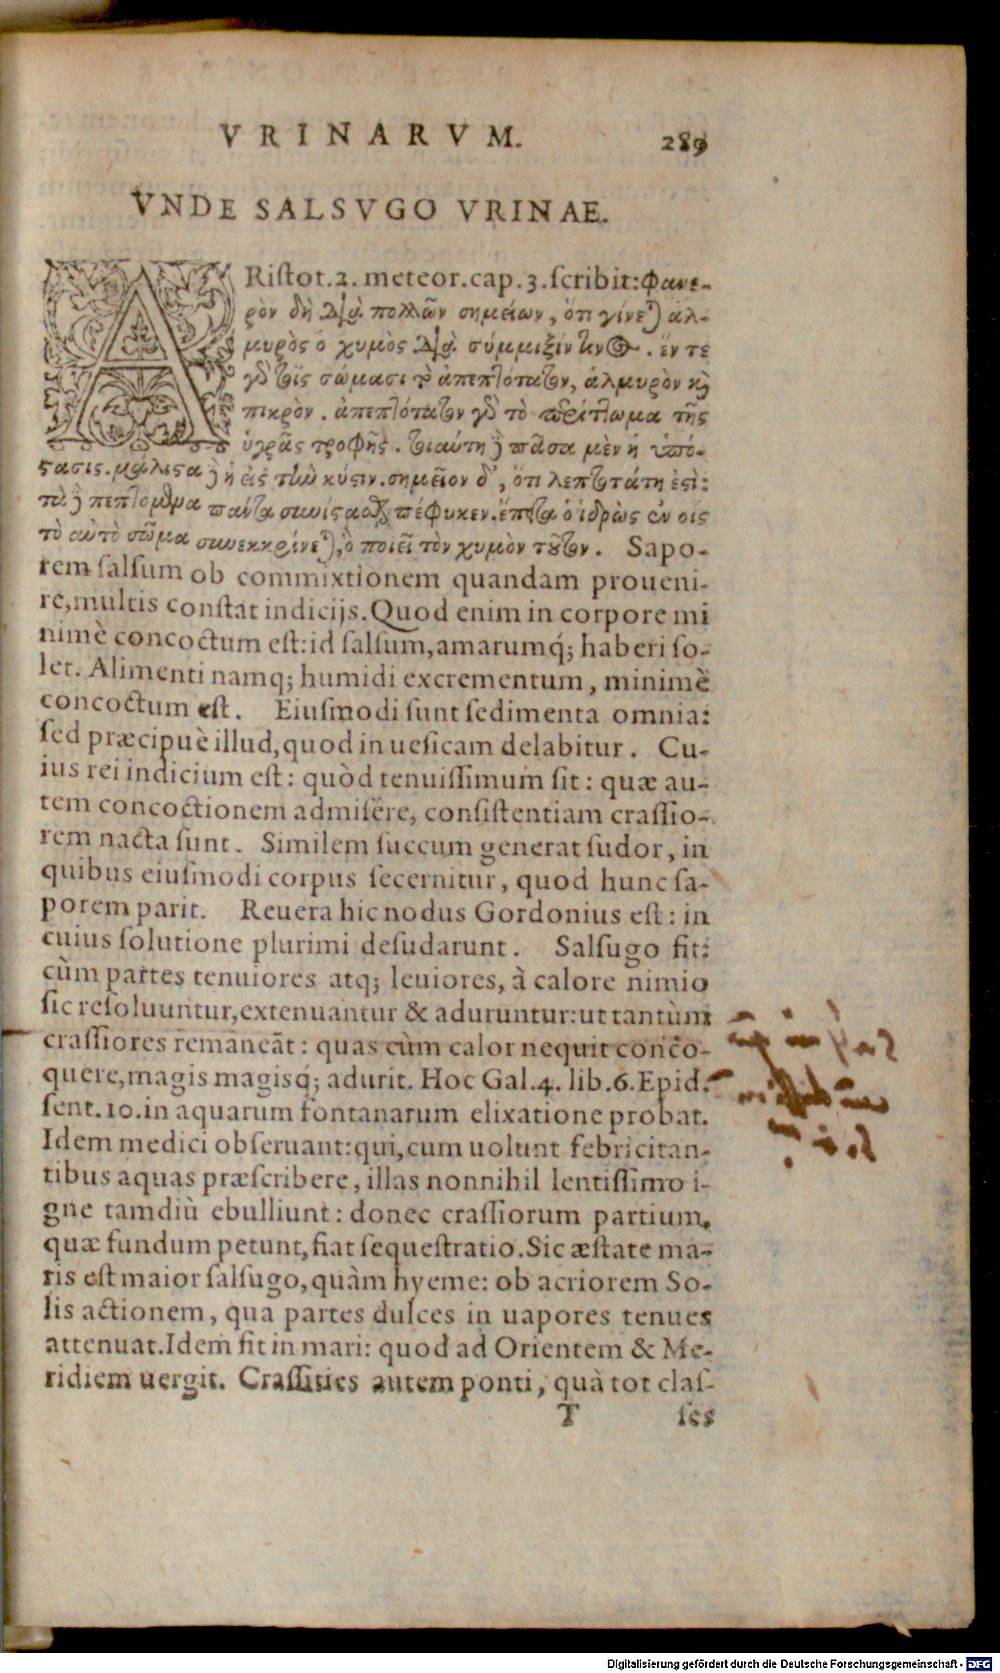 VRINARVM. 289
VNDE SALSVGO VRINAE.
ARistot.2. meteor.cap.3.scribit: φανε-
ρὸν δὴ διὰ πολλῶν σημείων, ὅτι γίνε) ἁλ-
μυρὸς ὁ χυμὸς διὰ σύμμιξίν τινος. ἔν τε
γὸ τοῖς σώμασι τὸ ἀπεπτότατον, ἁλμυρὸν κὶ
πικρὸν. ἀπεπτότατον γὸ τὸ περίττωμα τῆς
ὑγρᾶς τροφῆς. τοιαύτη ὃ πᾶσα μὲν ἡ ὑπό-
στασις. μάλιστα ὃ ἡ εἰς τὴν κύστιν. σημεῖον δ', ὅτι λεπτοτάτη ἐστί:
τὰ ὃ πεπτόμενα πάντα συνίστασθαι πέφυκεν. ἔπειτα ὁ ἱδρὼς ἐν οἷς
τὸ αὐτὸ σῶμα συνεκκρίνε), ὃ ποιεῖ τὸν χυμὸν τοῦτον. Sapo-
rem salsum ob commixtionem quandam proueni-
re, multis constat indicijs. Quod enim in corpore mi
nimè concoctum est: id salsum, amarumq́; haberi so-
let. Alimenti namq; humidi excrementum, minimè
concoctum est. Eiusmodi sunt sedimenta omnia:
sed præcipuè illud, quod in uesicam delabitur. Cu-
ius rei indicium est: quòd tenuissimum sit: quæ au-
tem concoctionem admisêre, consistentiam crassio-
rem nacta sunt. Similem succum generat sudor, in
quibus eiusmodi corpus secernitur, quod hunc sa-
porem parit. Reuera hic nodus Gordonius est: in
cuius solutione plurimi desudarunt. Salsugo fit:
cùm partes tenuiores atq; leuiores, à calore nimio
sic resoluuntur, extenuantur & aduruntur: ut tantùm
crassiores remaneāt: quas cùm calor nequit conco-
quere, magis magisq́; adurit. Hoc Gal.4. lib.6. Epid.
sent.10. in aquarum fontanarum elixatione probat.
Idem medici obseruant: qui, cum uolunt febricitan-
tibus aquas præscribere, illas nonnihil lentissimo i-
gne tamdiù ebulliunt: donec crassiorum partium,
quæ fundum petunt, fiat sequestratio. Sic æstate ma-
ris est maior salsugo, quàm hyeme: ob acriorem So-
lis actionem, qua partes dulces in uapores tenues
attenuat. Idem fit in mari: quod ad Orientem & Me-
ridiem uergit. Crassities autem ponti, quà tot clas-
T ses
Digitalisierung gefördert durch die Deutsche Forschungsgemeinschaft - DFG